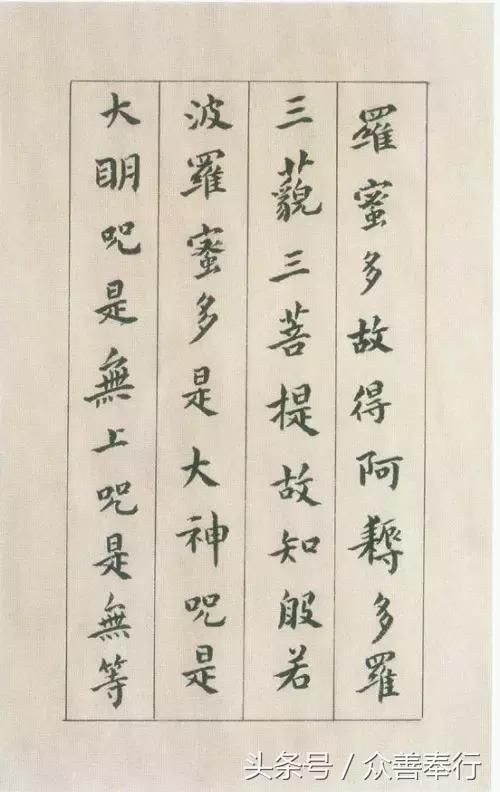 羅蜜多故得阿耨多羅
三藐三菩提故知般若
波羅蜜多是大神咒是
大明咒是無上咒是無等
头条号 / 众善奉行